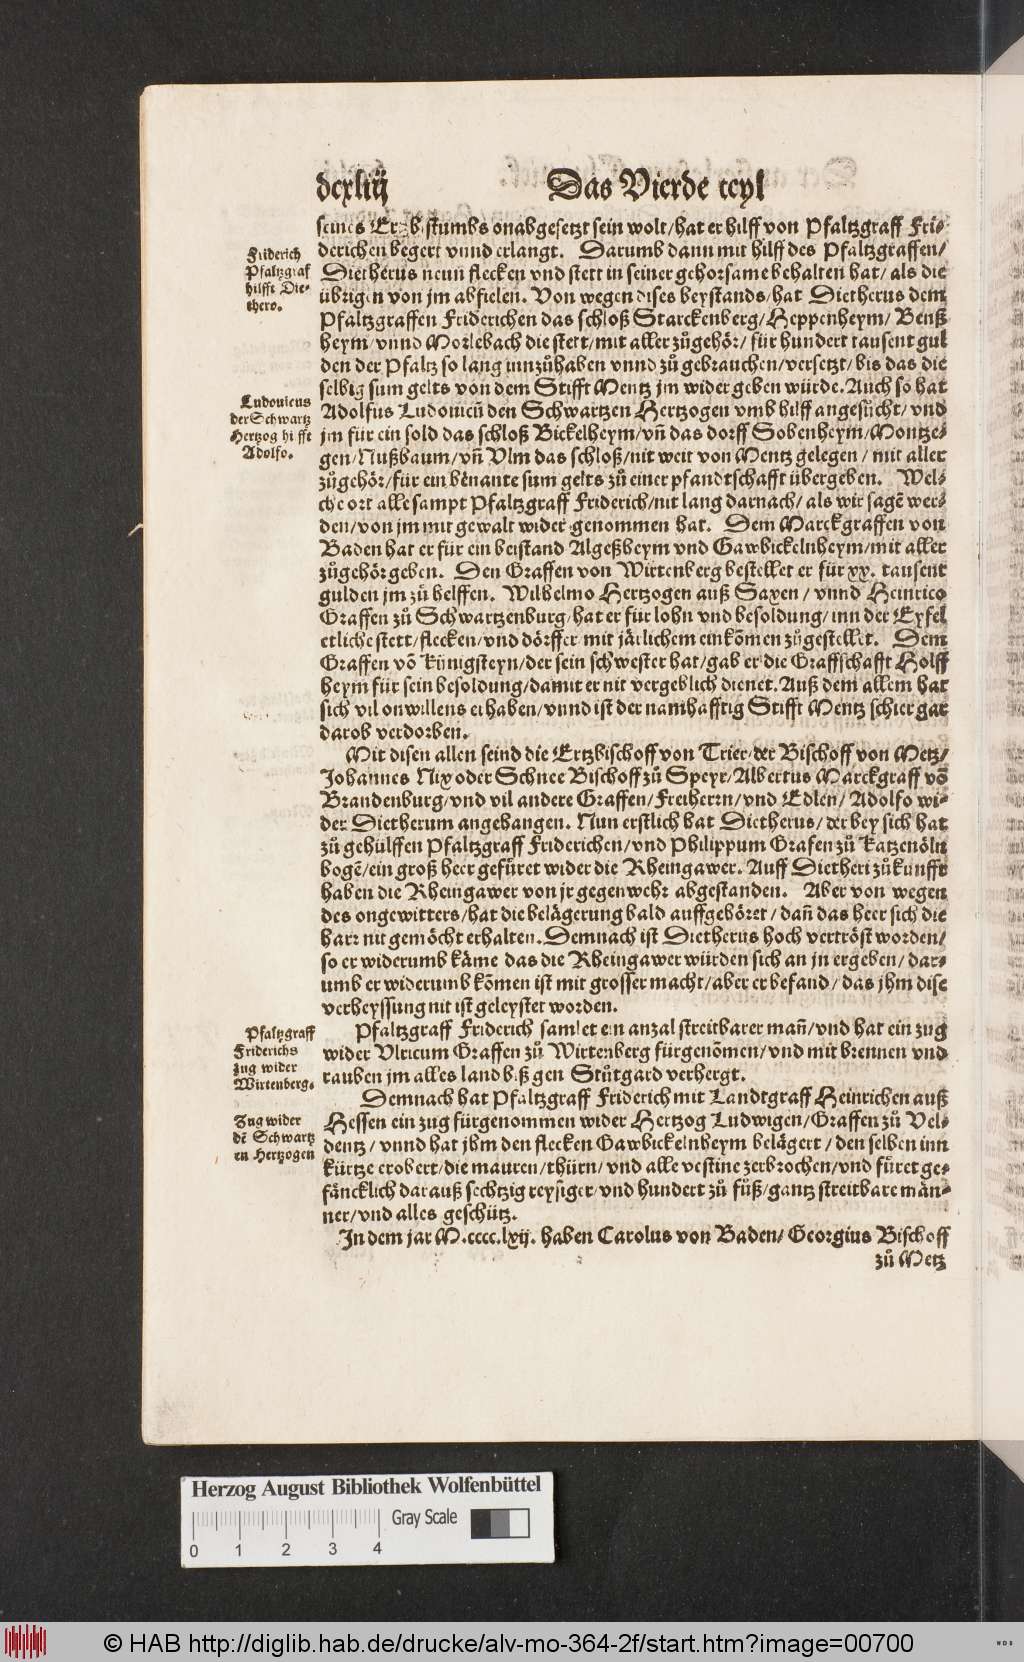 dcxliij
Das Vierde teyl
seines Ertzbistumbs onabgesetzt sein wolt/ hat er hilff von Pfaltzgraff Fri-
derichen begert vnnd erlangt. Darumb dann mit hilff des Pfaltzgraffen/
Dietherus neun flecken vnd stett in seiner gehorsame behalten hat/ als die
übrigen von jm abfielen. Von wegen dises beystands/ hat Dietherus dem
Pfaltzgraffen Friderichen das schloß Starckenberg/ Heppenheym/ Benß
heym/ vnnd Morlebach die stett/ mit aller zůgehör/ für hundert tausent gul
den der Pfaltz so lang innzůhaben vnnd zů gebrauchen/ versetzt/ bis das die
selbig sum gelts von dem Stifft Mentz jm wider geben würde. Auch so hat
Adolfus Ludouicū den Schwartzen Hertzogen vmb hilff angesůcht/ vnd
jm für ein sold das schloß Bickelheym/ vñ das dorff Sobenheym/ Montze-
gen/ Nußbaum/ vñ Vlm das schloß/ nit weit von Mentz gelegen/ mit aller
zůgehör/ für ein benante sum gelts zů einer pfandtschafft übergeben. Wel-
che ort alle sampt Pfaltzgraff Friderich/ nit lang darnach/ als wir sagē wer-
den/ von jm mit gewalt wider genommen hat. Dem Marckgraffen von
Baden hat er für ein beistand Algeßheym vnd Gawbickelnheym/ mit aller
zůgehör geben. Den Graffen von Wirtenberg bestellet er für xx. tausent
gulden jm zů helffen. Wilhelmo Hertzogen auß Saxen/ vnnd Heinrico
Graffen zů Schwartzenburg/ hat er für lohn vnd besoldung/ inn der Eyfel
etliche stett/ flecken/ vnd dörffer mit järlichem einkōmen zůgestellet. Dem
Graffen vō Künigsteyn/ der sein schwester hat/ gab er die Graffschafft Holff
heym für sein besoldung/ damit er nit vergeblich dienet. Auß dem allem hat
sich vil onwillens erhaben/ vnnd ist der namhafftig Stifft Mentz schier gar
darob verdorben.
Mit disen allen seind die Ertzbischoff von Trier/ der Bischoff von Metz/
Johannes Nix oder Schnee Bischoff zů Speyr/ Albertus Marckgraff vō
Brandenburg/ vnd vil andere Graffen/ Freiherrn/ vnd Edlen/ Adolfo wi-
der Dietherum angehangen. Nun erstlich hat Dietherus/ der bey sich hat
zů gehülffen Pfaltzgraff Friderichen/ vnd Philippum Grafen zů Katzenöln
bogē/ ein groß heer gefüret wider die Rheingawer. Auff Dietheri zůkunfft
haben die Rheingawer von jr gegenwehr abgestanden. Aber von wegen
des ongewitters/ hat die belägerung bald auffgehöret/ dañ das heer sich die
harr nit gemöcht erhalten. Demnach ist Dietherus hoch vertröst worden/
so er widerumb käme das die Rheingawer würden sich an jn ergeben/ dar-
umb er widerumb kōmen ist mit grosser macht/ aber er befand/ das jhm dise
verheyssung nit ist geleystet worden.
Pfaltzgraff Friderich samlet ein anzal streitbarer mañ/ vnd hat ein zug
wider Vlricum Graffen zů Wirtenberg fürgenōmen/ vnd mit brennen vnd
rauben jm alles land biß gen Stůtgard verhergt.
Demnach hat Pfaltzgraff Friderich mit Landtgraff Heinrichen auß
Hessen ein zug fürgenommen wider Hertzog Ludwigen/ Graffen zů Vel-
dentz/ vnnd hat jhm den flecken Gawbickelnheym belägert/ den selben inn
kürtze erobert/ die mauren/ thürn/ vnd alle vestine zerbrochen/ vnd füret ge-
fäncklich darauß sechtzig reysiger/ vnd hundert zů fůß/ gantz streitbare män-
ner/ vnd alles geschütz.
In dem jar M.cccc.lxij. haben Carolus von Baden/ Georgius Bischoff
zů Metz
Friderich
Pfaltzgraf
hilfft Die-
thero.
Ludouicus
der Schwartz
Hertzog hilfft
Adolfo.
Pfaltzgraff
Friderichs
zug wider
Wirtenberg.
Zug wider
dē Schwartz
en Hertzogen
Herzog August Bibliothek Wolfenbüttel
Gray Scale
0 1 2 3 4
© HAB http://diglib.hab.de/drucke/alv-mo-364-2f/start.htm?image=00700
HAB